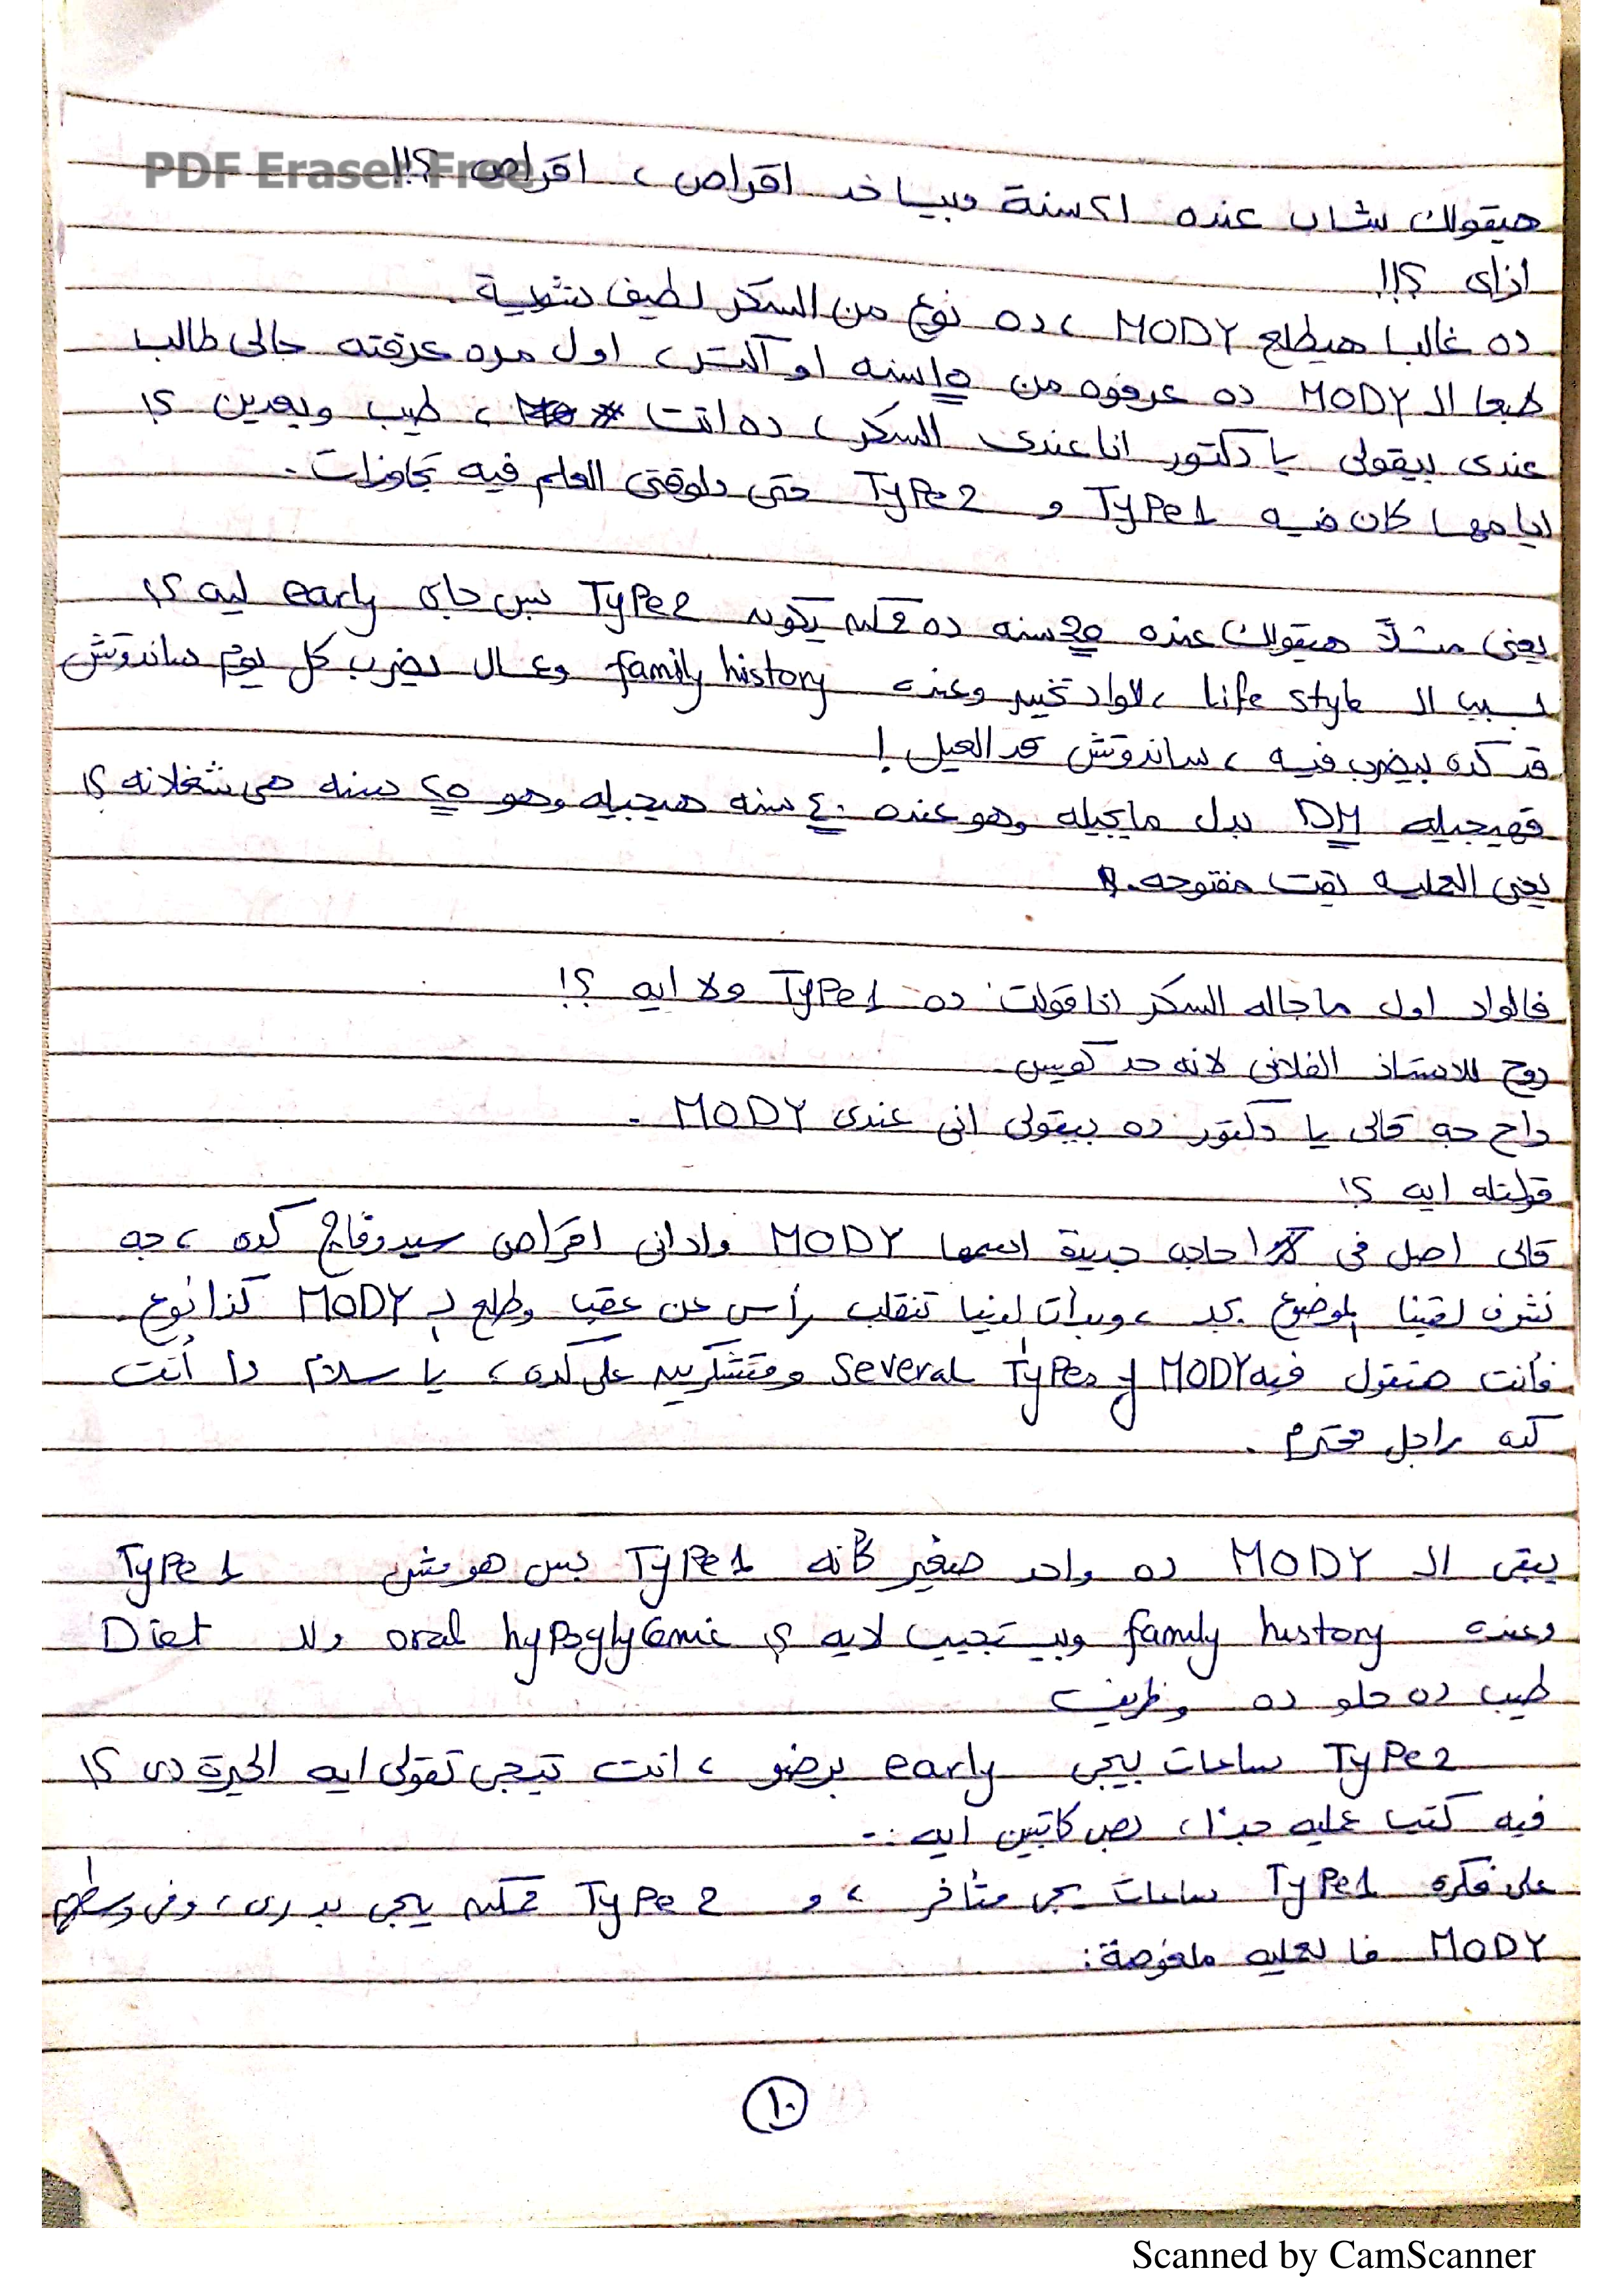 PDF Eraser Free
هيقولك شاب عنده ٢١ سنة وبياخد اقراص ، اقراص ؟!!
ازاى ؟!!
ده غالبا هيطلع MODY ، ده نوع من السكر لطيف شوية .
طبعا الـ MODY ده عرفوه من ١٥ سنه او اكتر ، اول مره عرفته جالى طالب
عندى بيقولى يا دكتور انا عندى السكر ، ده انت ، طيب وبعدين ؟!
ايامها كان فيه Type 1 و Type 2 حتى دلوقتى العلم فيه تجاوزات .
يعنى مثلاً هيقولك عنده سنه ده ممكن يكون Type 2 بس جاى early ليه ؟!
بسبب الـ life style ، لاواد تخين وعنده family history وعمال يضرب كل يوم ساندوتش
قد كده بيضرب فيه ، ساندوتش قد العيل !
فهيجيله DM بدل مايجيله وهو عنده ٤٠ سنه هيجيله وهو ٢٥ سنه هى شغلانه ؟!
يعنى العلبه بقت مفتوحه .
فالواد اول ماجاله السكر انا قولت ده Type 1 ولا ايه ؟!
روح للاستاذ الفلانى لانه حد كويس
راح جه قالى يا دكتور ده بيقولى انى عندى MODY .
قولتله ايه ؟!
قالى اصل فى حاجه جديدة اسمها MODY وادانى اقراص سيدوفاج كده ، جه
نشوف لقينا الموضوع بجد ، وبدأت الدنيا تنقلب رأس عن عقب وطلع لـ MODY كذا نوع .
فأنت هتقول فيه Several Types of MODY ومتشكرين على كده ، يا سلام دا أنت
كده راجل محترم .
يبقى الـ MODY ده واحد صغير كأنه Type 1 بس هو مش Type 1
وعنده family history وبيستجيب لايه ؟ oral hypoglycemic ولا Diet
طيب ده حلو ده وظريف
Type 2 ساعات بيجى early برضو ، انت تيجى تقولى ايه الحيرة دى ؟!
فيه كتب عليه جدا ، بص كاتبين ايه :-
على فكره Type 1 ساعات يجى متأخر ، و Type 2 ممكن يجى بدرى ، وفى وسطهم
MODY فالعليه ملغوصة :
١٠
Scanned by CamScanner